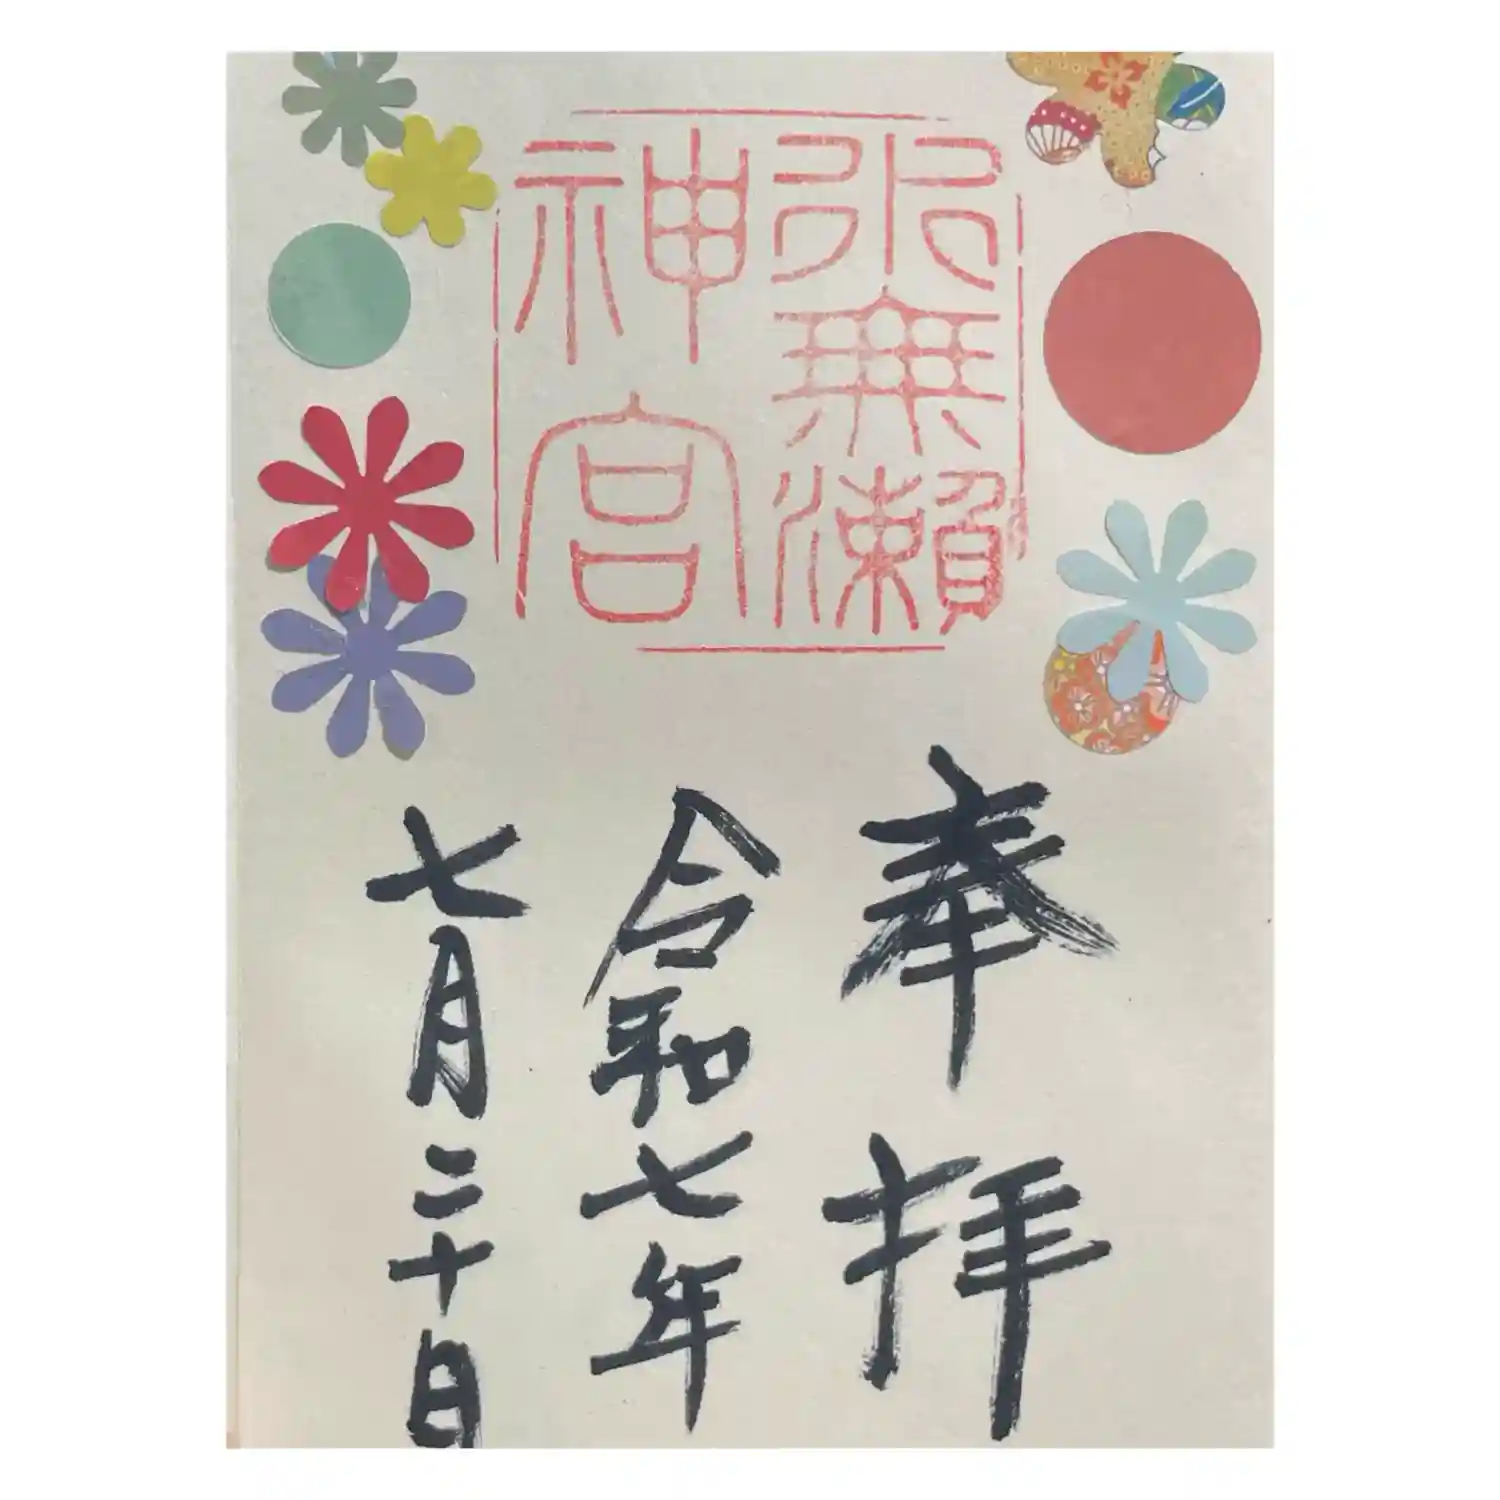 水無瀬
神宮
奉拝
令和七年
七月二十日